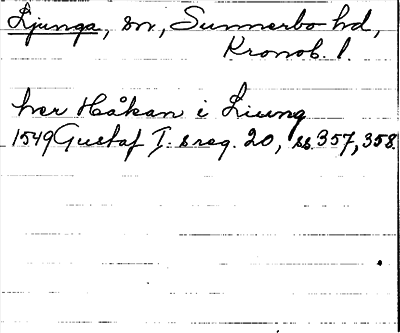 Ljunga, sn, Sunnerbo hd,
Kronob. l.
her Håkan i Liung
1549 Gustaf I:s reg. 20, ss. 357, 358.